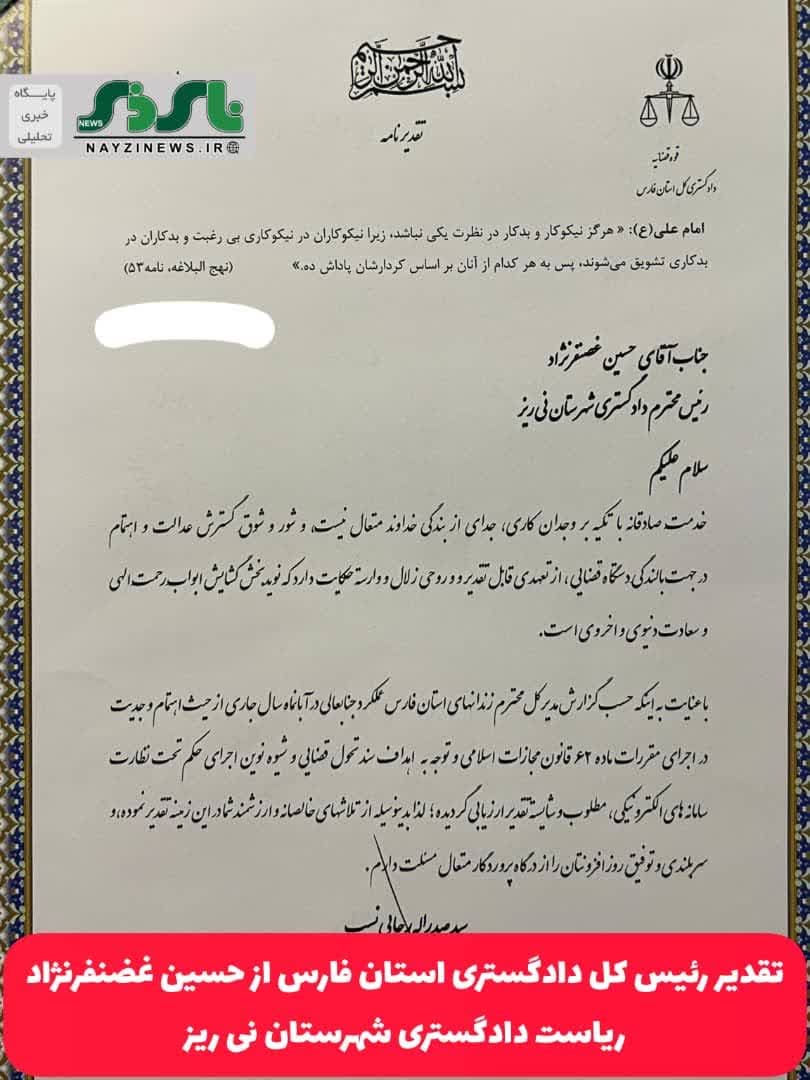 بسم الله الرحمن الرحیم
تقدیرنامه
قوه قضائیه
دادگستری کل استان فارس
پایگاه
خبری
تحلیلی
نای ذی
NEWS
NAYZINEWS.IR
امام علی(ع): « هرگز نیکوکار و بدکار در نظرت یکی نباشد، زیرا نیکوکاران در نیکوکاری بی رغبت و بدکاران در
بدکاری تشویق می‌شوند، پس به هر کدام از آنان بر اساس کردارشان پاداش ده.» (نهج البلاغه، نامه۵۳)
جناب آقای حسین غضنفرنژاد
رئیس محترم دادگستری شهرستان نی ریز
سلام علیکم
خدمت صادقانه با تکیه بر وجدان کاری، جدای از بندگی خداوند متعال نیست، و شور و شوق گسترش عدالت و اهتمام
در جهت بالندگی دستگاه قضایی، از تعهدی قابل تقدیر و و روحی زلال و وارسته حکایت دارد که نویدبخش گشایش ابواب رحمت الهی
و سعادت دنیوی و اخروی است.
با عنایت به اینکه حسب گزارش مدیر کل محترم زندانهای استان فارس عملکرد جنابعالی در آبانماه سال جاری از حیث اهتمام و جدیت
در اجرای مقررات ماده ۶۲ قانون مجازات اسلامی و توجه به اهداف سند تحول قضایی و شیوه نوین اجرای حکم تحت نظارت
سامانه های الکترونیکی، مطلوب و شایسته تقدیر ارزیابی گردیده؛ لذا بدینوسیله از تلاشهای خالصانه و ارزشمند شما در این زمینه تقدیر نموده، و
سربلندی و توفیق روزافزونتان را از درگاه پروردگار متعال مسئلت دارم.
سید صدراله رجایی نسب
تقدیر رئیس کل دادگستری استان فارس از حسین غضنفرنژاد
ریاست دادگستری شهرستان نی ریز